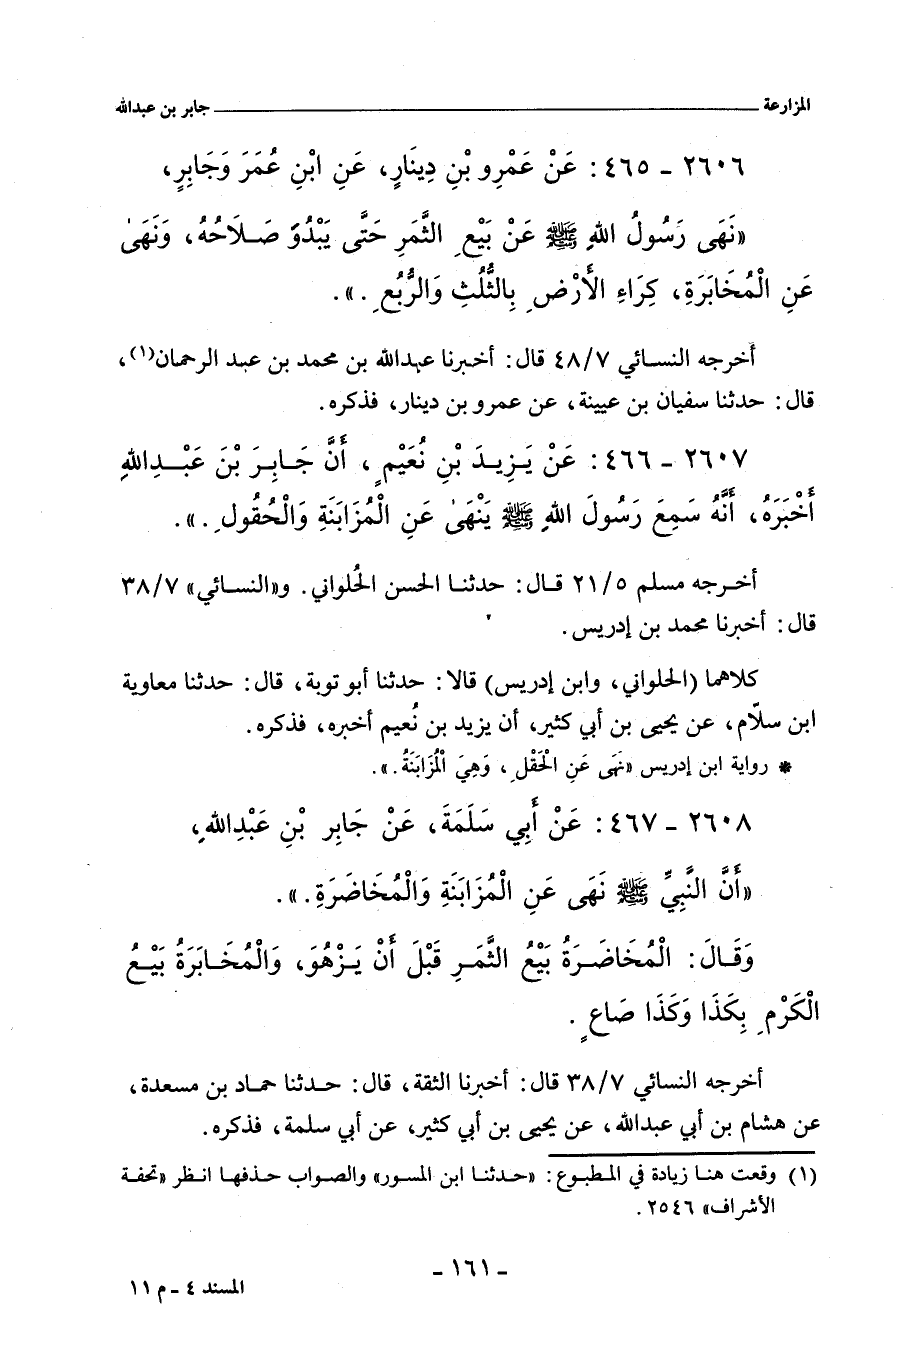 المزارعة ــــــــــــ جابر بن عبدالله
٢٦٠٦ - ٤٦٥ : عَنْ عَمْرِو بْنِ دِينَارٍ، عَنِ ابْنِ عُمَرَ وَجَابِرٍ،
«نَهَى رَسُولُ اللهِ ﷺ عَنْ بَيْعِ الثَّمَرِ حَتَّى يَبْدُوَ صَلَاحُهُ، وَنَهَىٰ
عَنِ الْمُخَابَرَةِ، كِرَاءِ الأَرْضِ بِالثُّلُثِ وَالرُّبُعِ .».
أخرجه النسائي ٤٨/٧ قال: أخبرنا عبدالله بن محمد بن عبد الرحمان(١)،
قال: حدثنا سفيان بن عيينة، عن عمرو بن دينار، فذكره.
٢٦٠٧ - ٤٦٦ : عَنْ يَزِيدَ بْنِ نُعَيْمٍ، أَنَّ جَابِرَ بْنَ عَبْدِاللهِ
أَخْبَرَهُ، أَنَّهُ سَمِعَ رَسُولَ اللهِ ﷺ يَنْهَىٰ عَنِ الْمُزَابَنَةِ وَالْحُقُولِ .».
أخرجه مسلم ٢١/٥ قال: حدثنا الحسن الحُلواني. و«النسائي» ٣٨/٧
قال: أخبرنا محمد بن إدريس.
كلاهما (الحلواني، وابن إدريس) قالا: حدثنا أبو توبة، قال: حدثنا معاوية
ابن سلّام، عن يحيى بن أبي كثير، أن يزيد بن نُعيم أخبره، فذكره.
* رواية ابن إدريس «نَهَى عَنِ الْحَقْلِ، وَهِيَ الْمُزَابَنَةُ.».
٢٦٠٨ - ٤٦٧ : عَنْ أَبِي سَلَمَةَ، عَنْ جَابِرِ بْنِ عَبْدِاللهِ،
«أَنَّ النَّبِيَّ ﷺ نَهَى عَنِ الْمُزَابَنَةِ وَالْمُخَاضَرَةِ.».
وَقَالَ: الْمُخَاضَرَةُ بَيْعُ الثَّمَرِ قَبْلَ أَنْ يَزْهُوَ، وَالْمُخَابَرَةُ بَيْعُ
الْكَرْمِ بِكَذَا وَكَذَا صَاعٍ .
أخرجه النسائي ٣٨/٧ قال: أخبرنا الثقة، قال: حدثنا حماد بن مسعدة،
عن هشام بن أبي عبدالله، عن يحيى بن أبي كثير، عن أبي سلمة، فذكره.
(١) وقعت هنا زيادة في المطبوع: «حدثنا ابن المسور» والصواب حذفها انظر «تحفة
الأشراف» ٢٥٤٦.
- ١٦١ -
المسند ٤ - م ١١